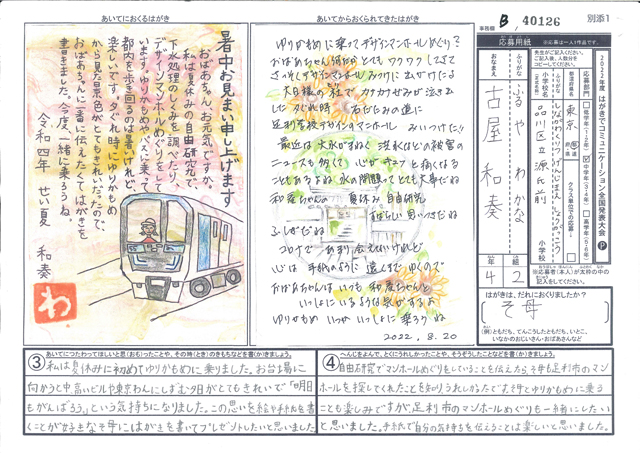 あいてにおくるはがき
あいてからおくられてきたはがき
事務局
B 40126
別添1
応募用紙
※応募は一人1作品です。
2022年度 はがきでコミュニケーション全国発表大会
暑中お見まい申し上げます
おばあちゃん、お元気ですか。
私は夏休みの自由研究で、
下水処理のしくみを調べたり、
デザインマンホールめぐりをして
います。ゆりかもめやバスに乗って
都内を歩き回るのは暑いけれど、
楽しいです。夕ぐれ時にゆりかもめ
から見た景色がとてもきれいだったので、
おばあちゃんに一番に伝えたくてはがきを
書きました。今度一緒に乗ろうね。
令和四年 せい夏 和奏
わ
ゆりかもめに乗ってデザインマンホールめぐり?
足利学校デザインマンホール みいつけた!!
最近は大水がすねと 洪水などの被害の
ニュースも多くて 心がキュッと痛くなる
こともあるよね 水の問題ってとても大事だね
和奏ちゃんの 夏休み 自由研究
すばらしい思いつきだね
ふしぎだね
コロナで あまり会えないけれど
心は 手紙のように 遠くまでゆくので
おばあちゃんはいつも 和奏ちゃんと
いっしょにいるような気がするよ
ゆりかもめ いつか いっしょに乗ろうね
2022.8.20
おなまえ
ふりがな
ふるや わかな
古屋 和奏
小学校名
東京
品川区立源氏前
小学校
応募部門
低学年(1・2年)
中学年(3・4年)
高学年(5・6年)
クラス単位での応募
年
組
4
2
※応募者(本人)が太枠の中の
記入をしてください。
はがきは、だれにおくりましたか?
(そ母)
(例)ともだち、てんこうしたともだち、いとこ、
いなかのおじいさん・おばあさんなど
③ あいてにつたわってほしいと思(おも)ったことや、その時(とき)のきもちなどを書(か)きましょう。
私は夏休みに初めてゆりかもめに乗りました。お台場に
向かうと中高いビルや東京わんにしずむ夕日がとてもきれいで「明日
もがんばろう。」という気持ちになりました。この思いを絵や手紙を書
くことが好きなそ母にはがきを書いてプレゼントしたいと思いました。
④ へんじをよんで、とくにうれしかったことや、そうぞうしたことなどを書(か)きましょう。
自由研究でマンホールめぐりをしていることを伝えたら、そ母も足利市のマン
ホールを探してくれたことを知りうれしかったです。そ母とゆりかもめに乗る
ことも楽しみですが、足利市のマンホールめぐりも一緒にしたい
と思いました。手紙で自分の気持ちを伝えることは楽しいと思いました。